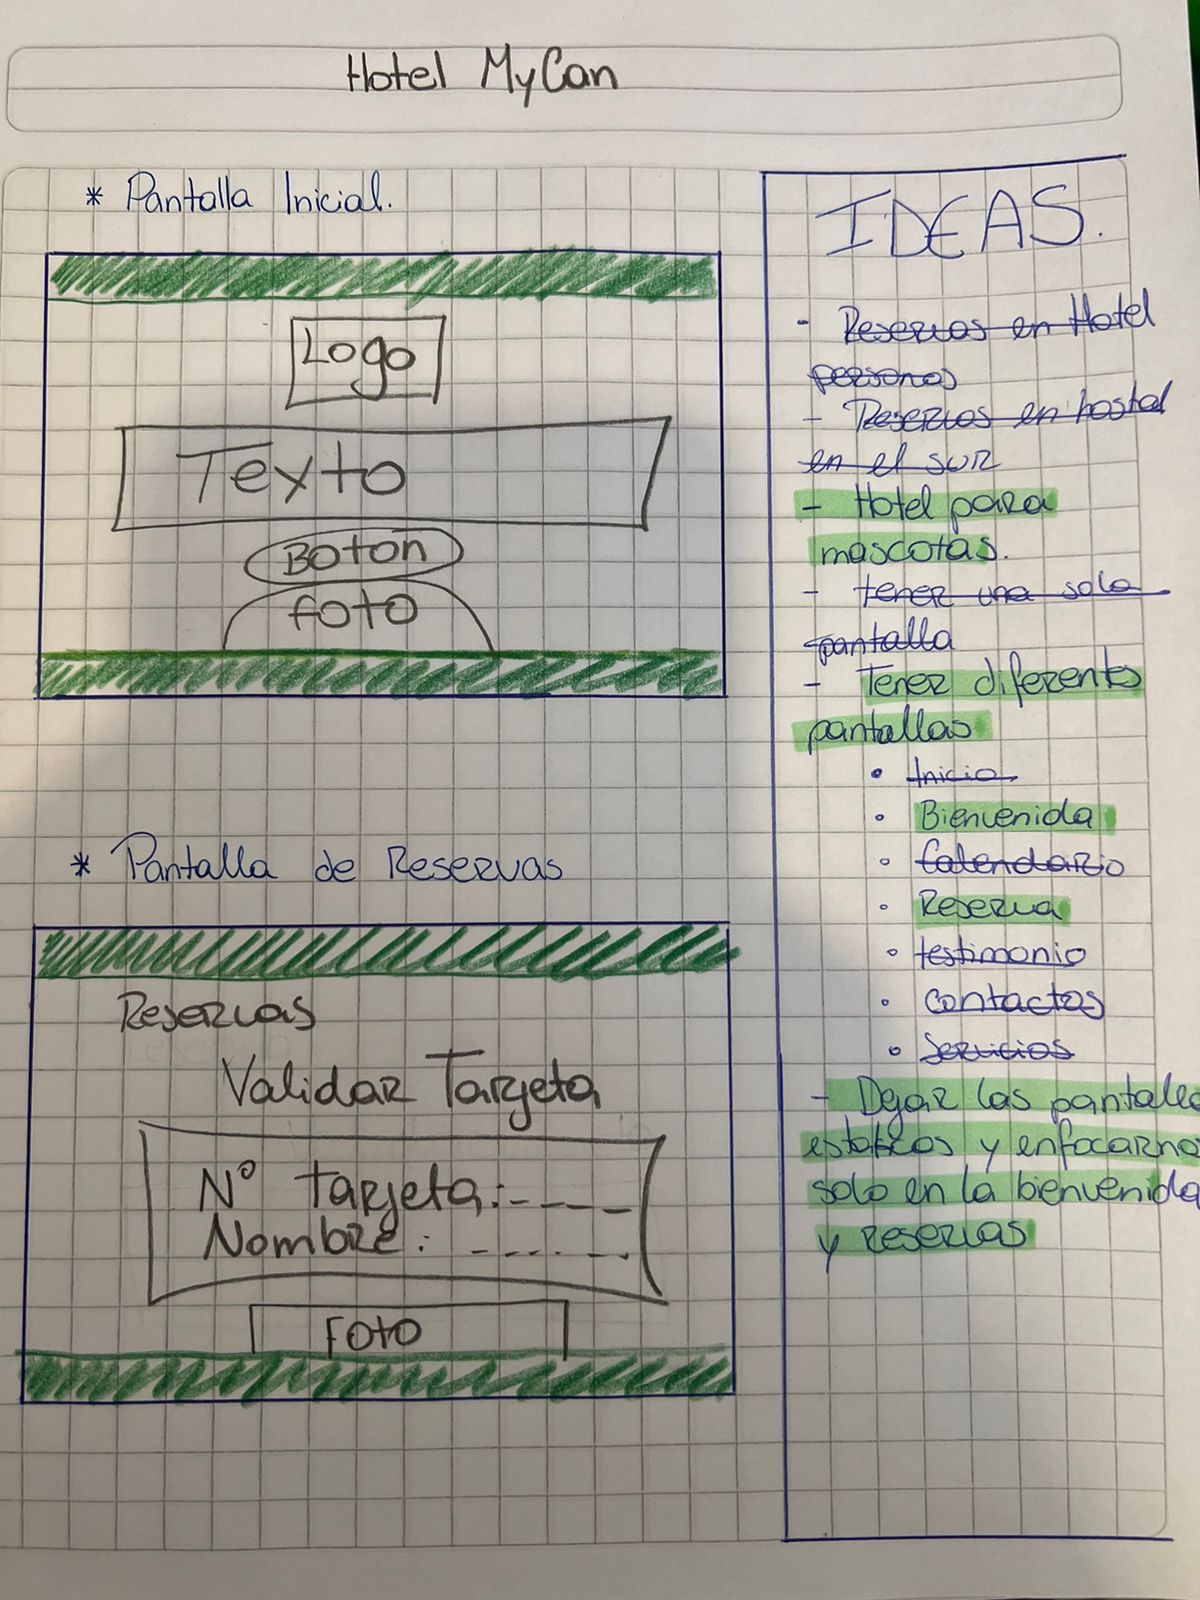 Hotel MyCan
* Pantalla Inicial.
Logo
Texto
Boton
foto
* Pantalla de Reservas
Reservas
Validar Tarjeta
Nº tarjeta:- _ _ _
Nombre: - - - - - -
Foto
IDEAS.
- Reservas en Hotel
personas
- Reservas en hostal
en el sur
- Hotel para
mascotas.
- tener una sola
pantalla
- Tener diferents
pantallas
• Inicio
• Bienvenida
• Calendario
• Reserva
• testimonio
• contactos
• Servicios
- Dejar las pantallas
estaticas y enfocarno
solo en la bienvenida
y reservas